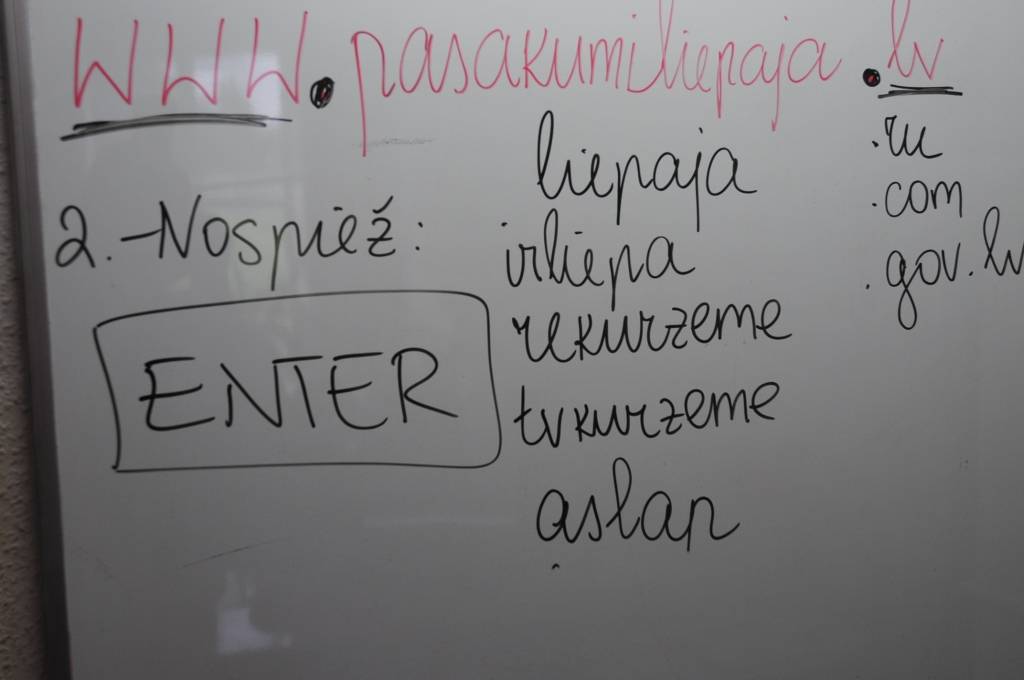 www.pasakumiliepaja.lv
liepaja
.ru
.com
2.-Nospiež:
irliepa
.gov.lv
rekurzeme
ENTER
tvkurzeme
aslan